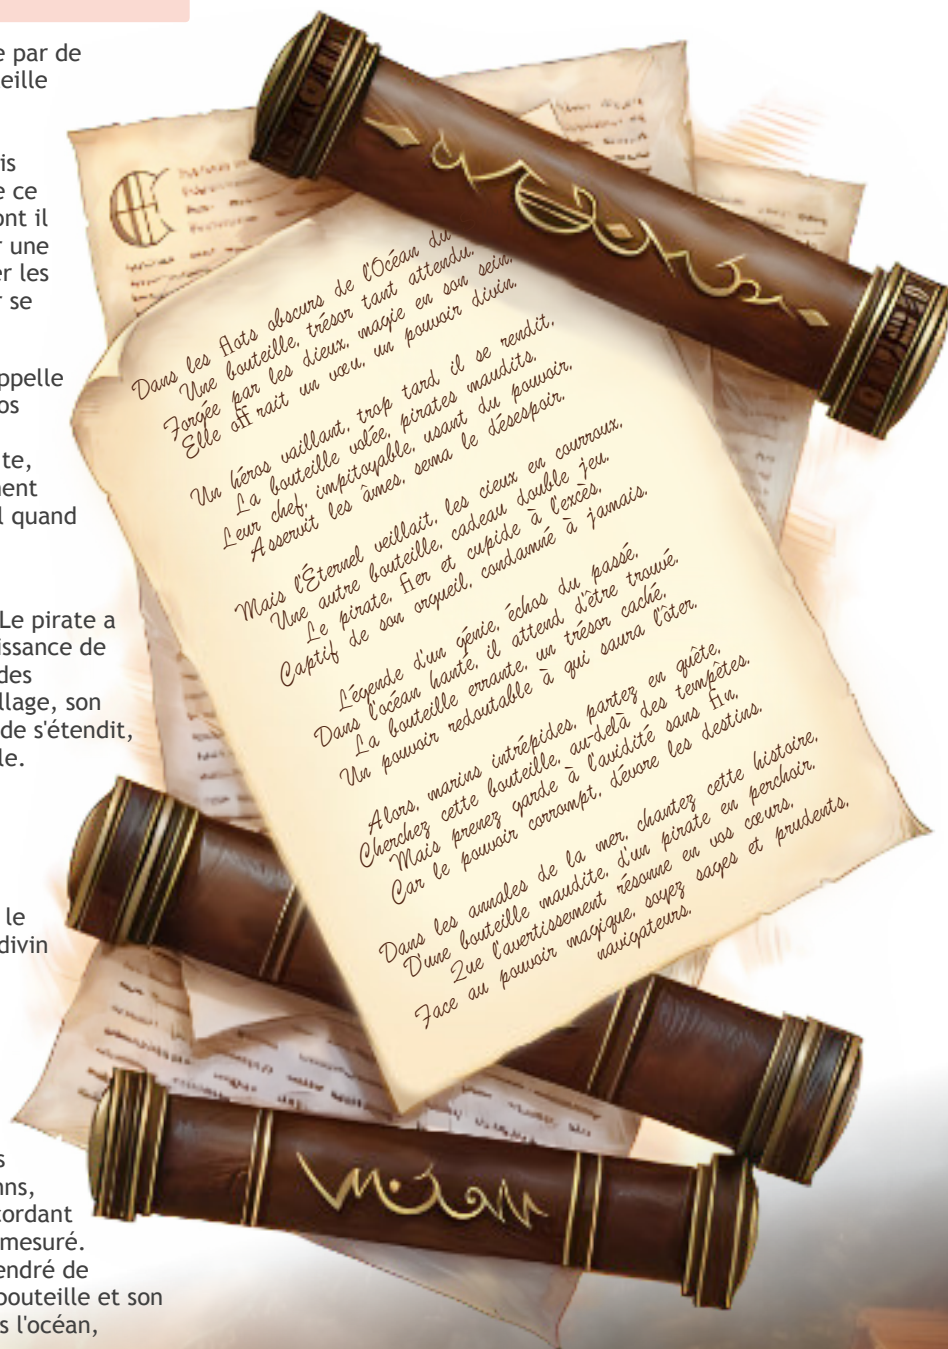 e par de
eille
is
e ce
ont il
r une
er les
r se
ppelle
os
te,
ment
l quand
Le pirate a
issance de
des
llage, son
de s'étendit,
le.
le
divin
s
nns,
cordant
mesuré.
endré de
bouteille et son
s l'océan,
Dans les flots obscurs de l'Océan du
Une bouteille, trésor tant attendu.
Forgée par les dieux, magie en son sein,
Elle offrait un vœu, un pouvoir divin.
Un héros vaillant, trop tard il se rendit,
La bouteille volée, pirates maudits.
Leur chef, impitoyable, usant du pouvoir,
Asservit les âmes, sema le désespoir.
Mais l'Éternel veillait, les cieux en courroux,
Une autre bouteille, cadeau double jeu.
Le pirate, fier et cupide à l'excès,
Captif de son orgueil, condamné à jamais.
Légende d'un génie, échos du passé,
Dans l'océan hanté, il attend d'être trouvé.
La bouteille errante, un trésor caché,
Un pouvoir redoutable à qui saura l'ôter.
Alors, marins intrépides, partez en quête,
Cherchez cette bouteille, au-delà des tempêtes.
Mais prenez garde à l'avidité sans fin,
Car le pouvoir corrompt, dévore les destins.
Dans les annales de la mer, chantez cette histoire,
D'une bouteille maudite, d'un pirate en perchoir.
Que l'avertissement résonne en vos cœurs,
Face au pouvoir magique, soyez sages et prudents,
navigateurs.